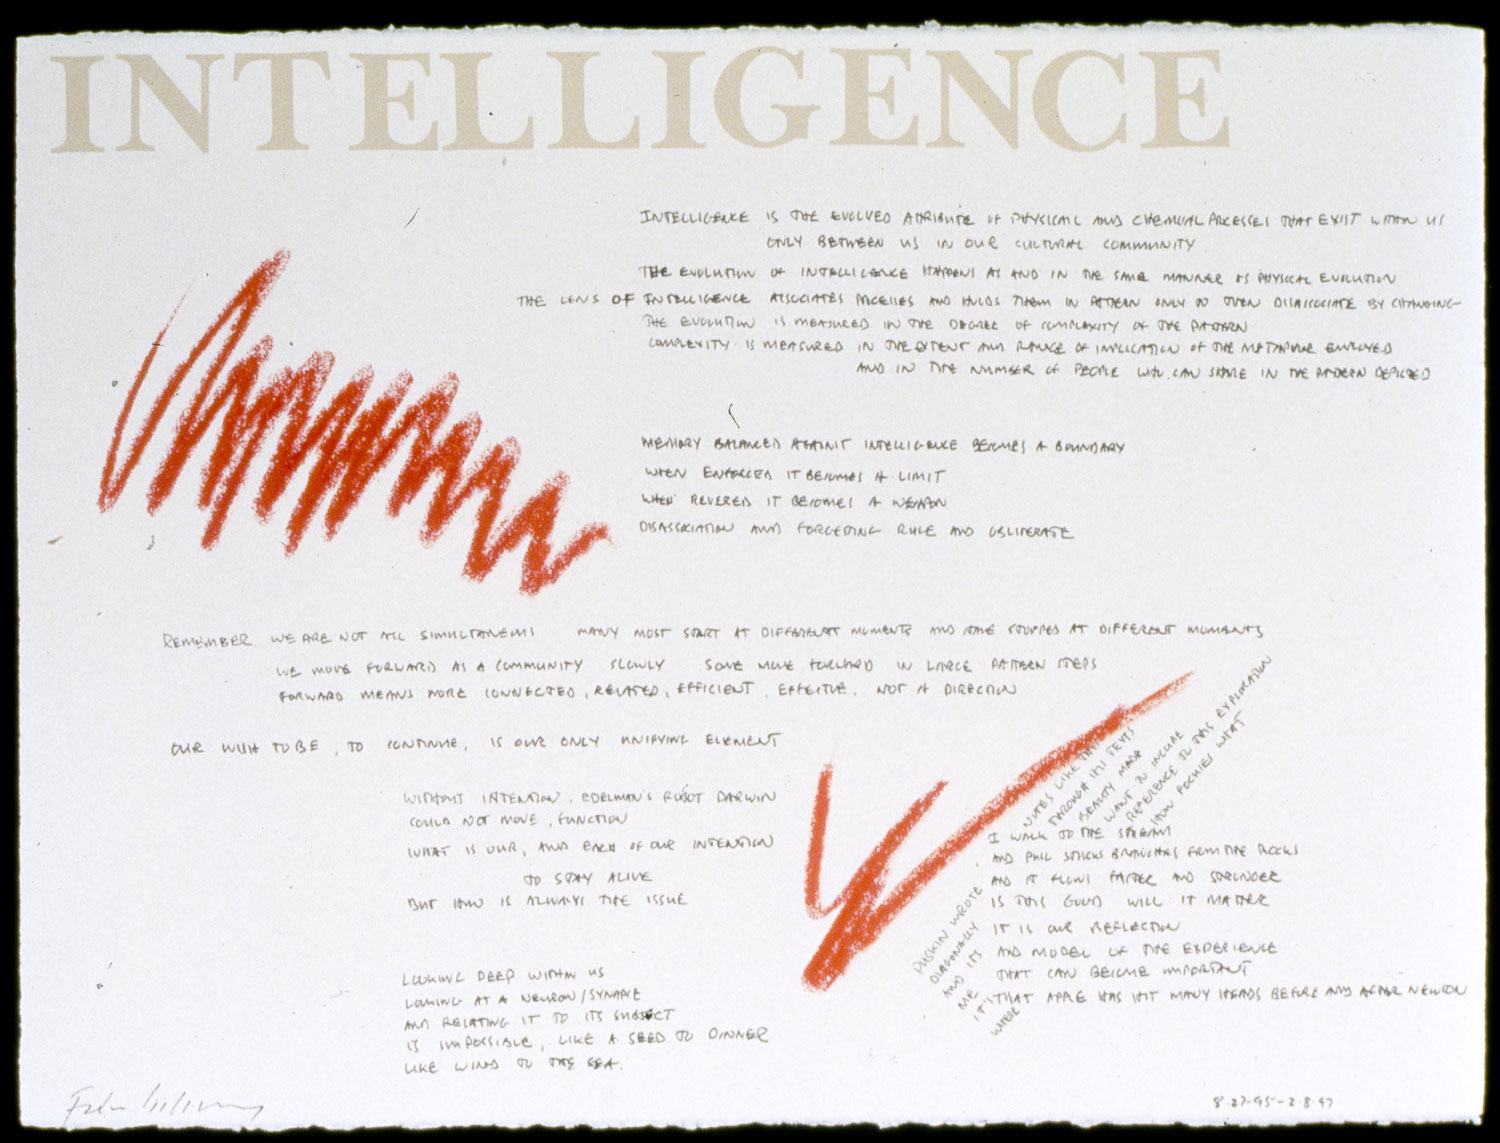 INTELLIGENCE
INTELLIGENCE IS THE EVOLVED ATRIBUTE OF PHYSICAL AND CHEMICAL PRCESSES THAT EXIST WITHIN US
ONLY BETWEEN US IN OUR CULTURAL COMMUNITY
THE EVOLUTION OF INTELLIGENCE HAPPENS AS AND IN THE SAME MANNER AS PHYSICAL EVOLUTION
THE LENS OF INTELLIGENCE ASSOCIATES PROCESSES AND HOLDS THEM IN PATTERN ONLY TO THEN DISASSOCIATE BY CHANGING
THE EVOLUTION IS MEASURED IN THE DEGREE OF COMPLEXITY OF THE PATTERN
COMPLEXITY IS MEASURED IN THE EXTENT AND RANGE OF IMPLICATION OF THE METAPHOR EMPLOYED
AND IN THE NUMBER OF PEOPLE WHO CAN SHARE IN THE PATTERN DEPICTED
MEMORY BALANCED AGAINST INTELLIGENCE BECOMES A BOUNDARY
WHEN ENFORCED IT BECOMES A LIMIT
WHEN REVERED IT BECOMES A WEAPON
DISASSOCIATION AND FORGETTING RULE AND OBLITERATE
REMEMBER WE ARE NOT ALL SIMULTANEOUS MANY MOST START AT DIFFERENT MOMENTS AND HAVE STOPPED AT DIFFERENT MOMENTS
WE MOVE FORWARD AS A COMMUNITY SLOWLY SOME MOVE FORWARD IN LARGE PATTERN STEPS
FORWARD MEANS MORE CONNECTED, RELATED, EFFICIENT, EFFECTIVE, NOT A DIRECTION
OUR WISH TO BE, TO CONTINUE, IS OUR ONLY UNIFYING ELEMENT
WITHOUT INTENTION, EDELMAN'S ROBOT DARWIN
COULD NOT MOVE, FUNCTION
WHAT IS OUR, AND EACH OF OUR INTENTION
TO STAY ALIVE
BUT HOW IS ALWAYS THE ISSUE
LOOKING DEEP WITHIN US
LOOKING AT A NEURON/SYNAPSE
AND RELATING IT TO ITS SUBJECT
IS IMPOSSIBLE, LIKE A SEED TO DINNER
LIKE WIND TO THE SEA.
PUSKIN WROTE
DIAGONALLY
AND ITS
ME
IT'S
WHERE
NOTES LIKE THIS
THROUGH HIS TEXTS
BEAUTY MADE
WANT TO INCLUDE
REFERENCE TO THIS EXPLORATION
HOW POCHIES WHAT
I WALK TO THE STREAM
AND PHIL STICKS BRANCHES FROM THE ROCKS
AND IT FLOWS FASTER AND STRONGER
IS THIS GOOD WILL IT MATTER
IT IS OUR REFLECTION
AND MODEL OF THE EXPERIENCE
THAT CAN BECOME IMPORTANT
THAT APPLE HAS HIT MANY HEADS BEFORE AND AFTER NEWTON
8.27.95-2.8.97